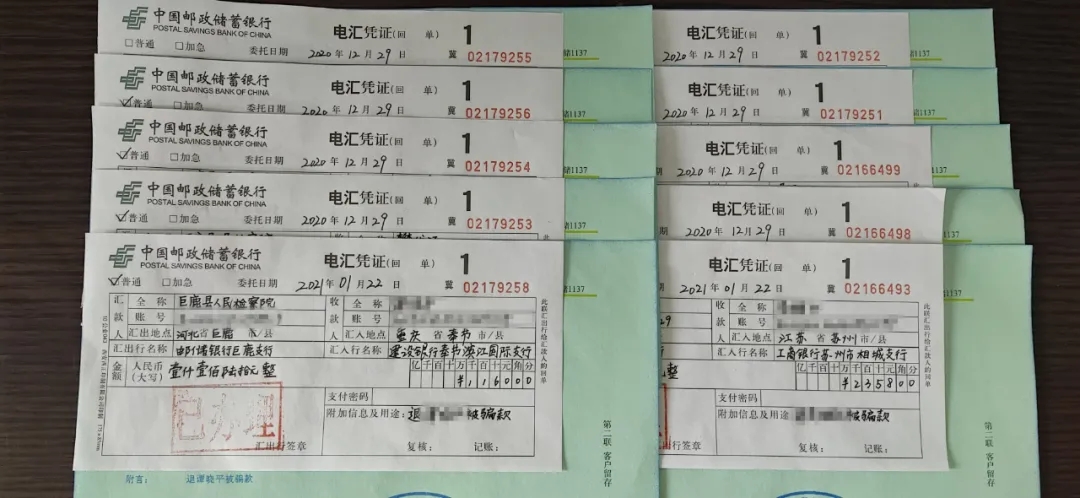 中国邮政储蓄银行
POSTAL SAVINGS BANK OF CHINA
电汇凭证(回 单) 1
□普通 □加急 委托日期 2020年12月29日 冀 02179255
储1137
中国邮政储蓄银行
POSTAL SAVINGS BANK OF CHINA
电汇凭证(回 单) 1
普通 □加急 委托日期 2020年12月29日 冀 02179256
中国邮政储蓄银行
POSTAL SAVINGS BANK OF CHINA
电汇凭证(回 单) 1
普通 □加急 委托日期 2020年12月29日 冀 02179254
中国邮政储蓄银行
POSTAL SAVINGS BANK OF CHINA
电汇凭证(回 单) 1
普通 □加急 委托日期 2020年12月29日 冀 02179253
中国邮政储蓄银行
POSTAL SAVINGS BANK OF CHINA
电汇凭证(回 单) 1
普通 □加急 委托日期 2021年01月22日 冀 02179258
汇款人 全称 巨鹿县人民检察院 收款人 全称
账号 账号
汇出地点 河北省巨鹿市/县 汇入地点 重庆省奉节市/县
汇出行名称 邮储银行巨鹿支行 汇入行名称 建设银行奉节滨江国际支行
金额 人民币(大写) 壹仟壹佰陆拾元整 亿千百十万千百十元角分
¥116000
支付密码
附加信息及用途: 退 被骗款
已办理
汇出行签章 复核: 记账:
此联汇出行给汇款人的回单
第二联 客户留存
附言: 退谭晓平被骗款
电汇凭证(回 单) 1
2020年12月29日 冀 02179252
储1137
电汇凭证(回 单) 1
2020年12月29日 冀 02179251
储1137
电汇凭证(回 单) 1
2020年12月29日 冀 02166499
储1137
电汇凭证(回 单) 1
2020年12月29日 冀 02166498
储1137
电汇凭证(回 单) 1
2021年01月22日 冀 02166493
储1137
收款人 全称
账号
汇入地点 江苏省苏州市/县
汇入行名称 工商银行苏州市相城支行
元整 亿千百十万千百十元角分
¥235800
支付密码
附加信息及用途: 被骗款
汇出行签章 复核: 记账:
此联汇出行给汇款人的回单
第二联 客户留存